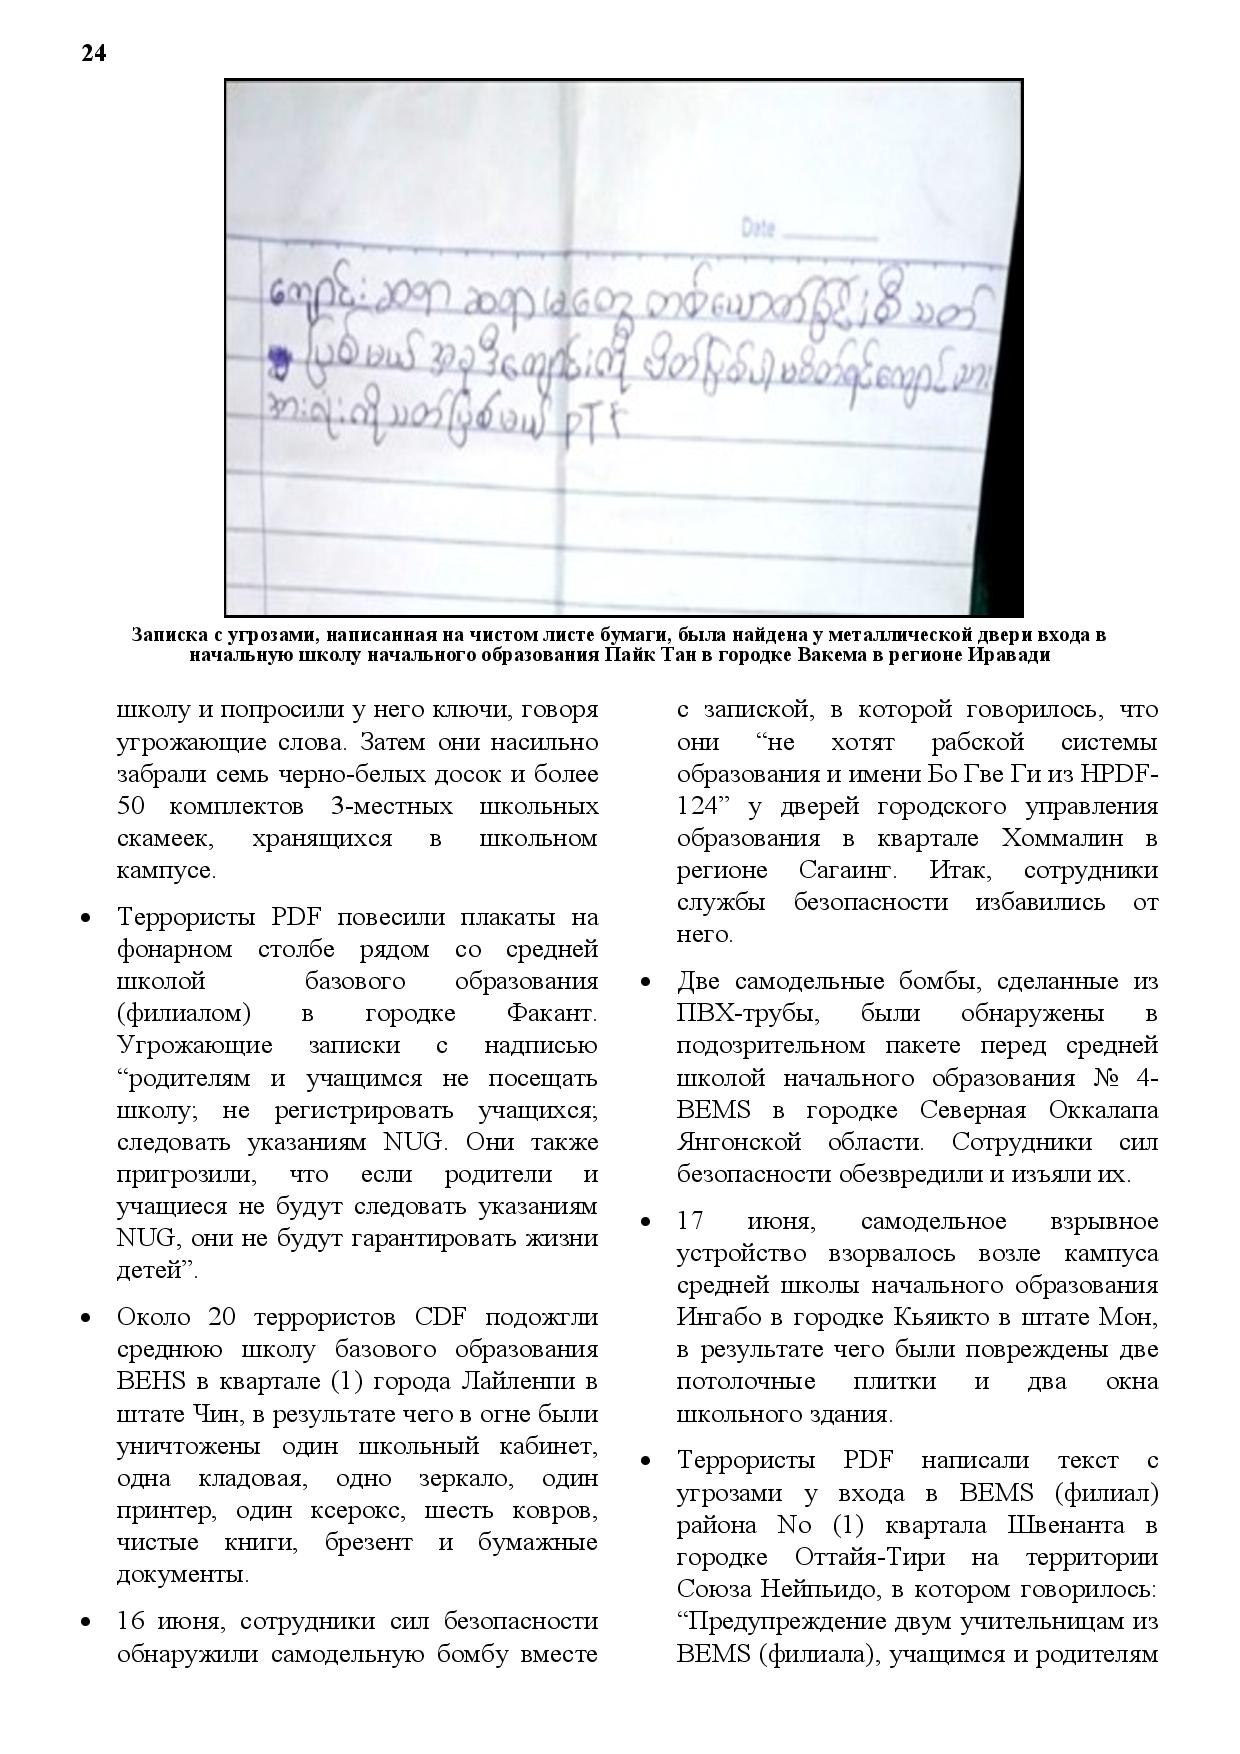 24
Date
ကျောင်းဆရာ ဆရာမတွေ တစ်ယောက်ပြီး သတ်
ပြစ်မယ် အခုဒီကျောင်းကို ပိတ်ပြစ်ပါ မပိတ်ရင်ကျောင်သား
အားလုံးကိုသတ်ပြစ်မယ် PTF
Записка с угрозами, написанная на чистом листе бумаги, была найдена у металлической двери входа в
начальную школу начального образования Пайк Тан в городке Вакема в регионе Иравади
школу и попросили у него ключи, говоря
угрожающие слова. Затем они насильно
забрали семь черно-белых досок и более
50 комплектов 3-местных школьных
скамеек, хранящихся в школьном
кампусе.
• Террористы PDF повесили плакаты на
фонарном столбе рядом со средней
школой базового образования
(филиалом) в городке Факант.
Угрожающие записки с надписью
“родителям и учащимся не посещать
школу; не регистрировать учащихся;
следовать указаниям NUG. Они также
пригрозили, что если родители и
учащиеся не будут следовать указаниям
NUG, они не будут гарантировать жизни
детей”.
• Около 20 террористов CDF подожгли
среднюю школу базового образования
BEHS в квартале (1) города Лайленпи в
штате Чин, в результате чего в огне были
уничтожены один школьный кабинет,
одна кладовая, одно зеркало, один
принтер, один ксерокс, шесть ковров,
чистые книги, брезент и бумажные
документы.
• 16 июня, сотрудники сил безопасности
обнаружили самодельную бомбу вместе
с запиской, в которой говорилось, что
они “не хотят рабской системы
образования и имени Бо Гве Ги из HPDF-
124” у дверей городского управления
образования в квартале Хоммалин в
регионе Сагаинг. Итак, сотрудники
службы безопасности избавились от
него.
• Две самодельные бомбы, сделанные из
ПВХ-трубы, были обнаружены в
подозрительном пакете перед средней
школой начального образования № 4-
BEMS в городке Северная Оккалапа
Янгонской области. Сотрудники сил
безопасности обезвредили и изъяли их.
• 17 июня, самодельное взрывное
устройство взорвалось возле кампуса
средней школы начального образования
Ингабо в городке Кьяикто в штате Мон,
в результате чего были повреждены две
потолочные плитки и два окна
школьного здания.
• Террористы PDF написали текст с
угрозами у входа в BEMS (филиал)
района No (1) квартала Швенанта в
городке Оттайя-Тири на территории
Союза Нейпьидо, в котором говорилось:
“Предупреждение двум учительницам из
BEMS (филиала), учащимся и родителям